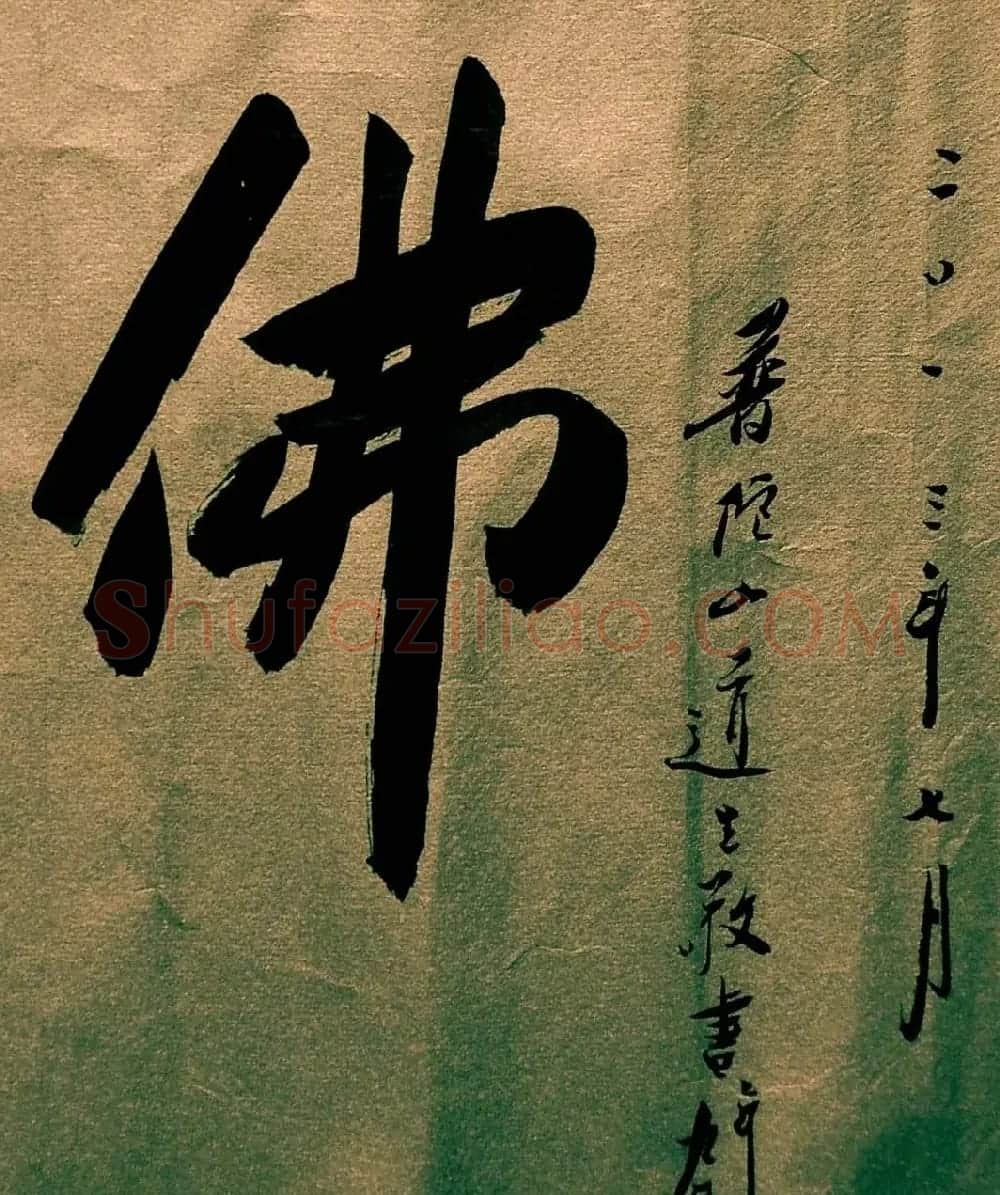 佛
二〇一三年七月
普陀山道生敬书年九旬
Shufaziliao.COM